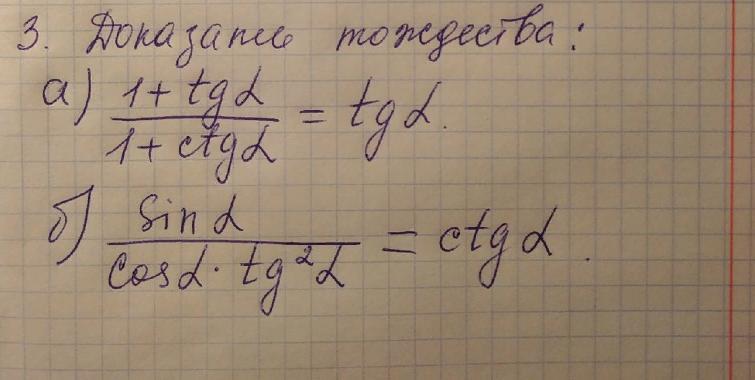 3. Доказать тождества:
а) (1 + tgα)/(1 + ctgα) = tgα.
б) (sinα)/(cosα · tg²α) = ctgα.